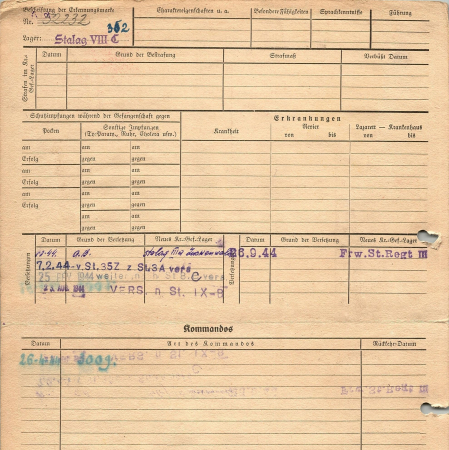 Beschriftung der Erkennungsmarke
Nr. 52232
Lager: Stalag VIII C 352
Charaktereigenschaften u. a.
Besondere Fähigkeiten
Sprachkenntnisse
Führung
Strafen im Kr.-Gef.-Lager
Datum
Grund der Bestrafung
Strafmaß
Verbüßt Datum
Schutzimpfungen während der Gefangenschaft gegen
Erkrankungen
Pocken
Sonstige Impfungen
(Ty.-Paraty., Ruhr, Cholera usw.)
Krankheit
Revier
von bis
Lazarett — Krankenhaus
von bis
am am am
Erfolg gegen gegen
am am am
Erfolg gegen gegen
am am am
Erfolg gegen gegen
am am
gegen gegen
Versetzungen
Datum Grund der Versetzung Neues Kr.-Gef.-Lager
Versetzungen
Grund der Versetzung Neues Kr.-Gef.-Lager
Stalag III
26.9.44 Frw.St.Regt III
7.2.44 v. St. 35Z z St.3A vers
25 1944
1944 VERS n St. IX-B
Kommandos
Datum
Art des Kommandos
Rückkehr-Datum